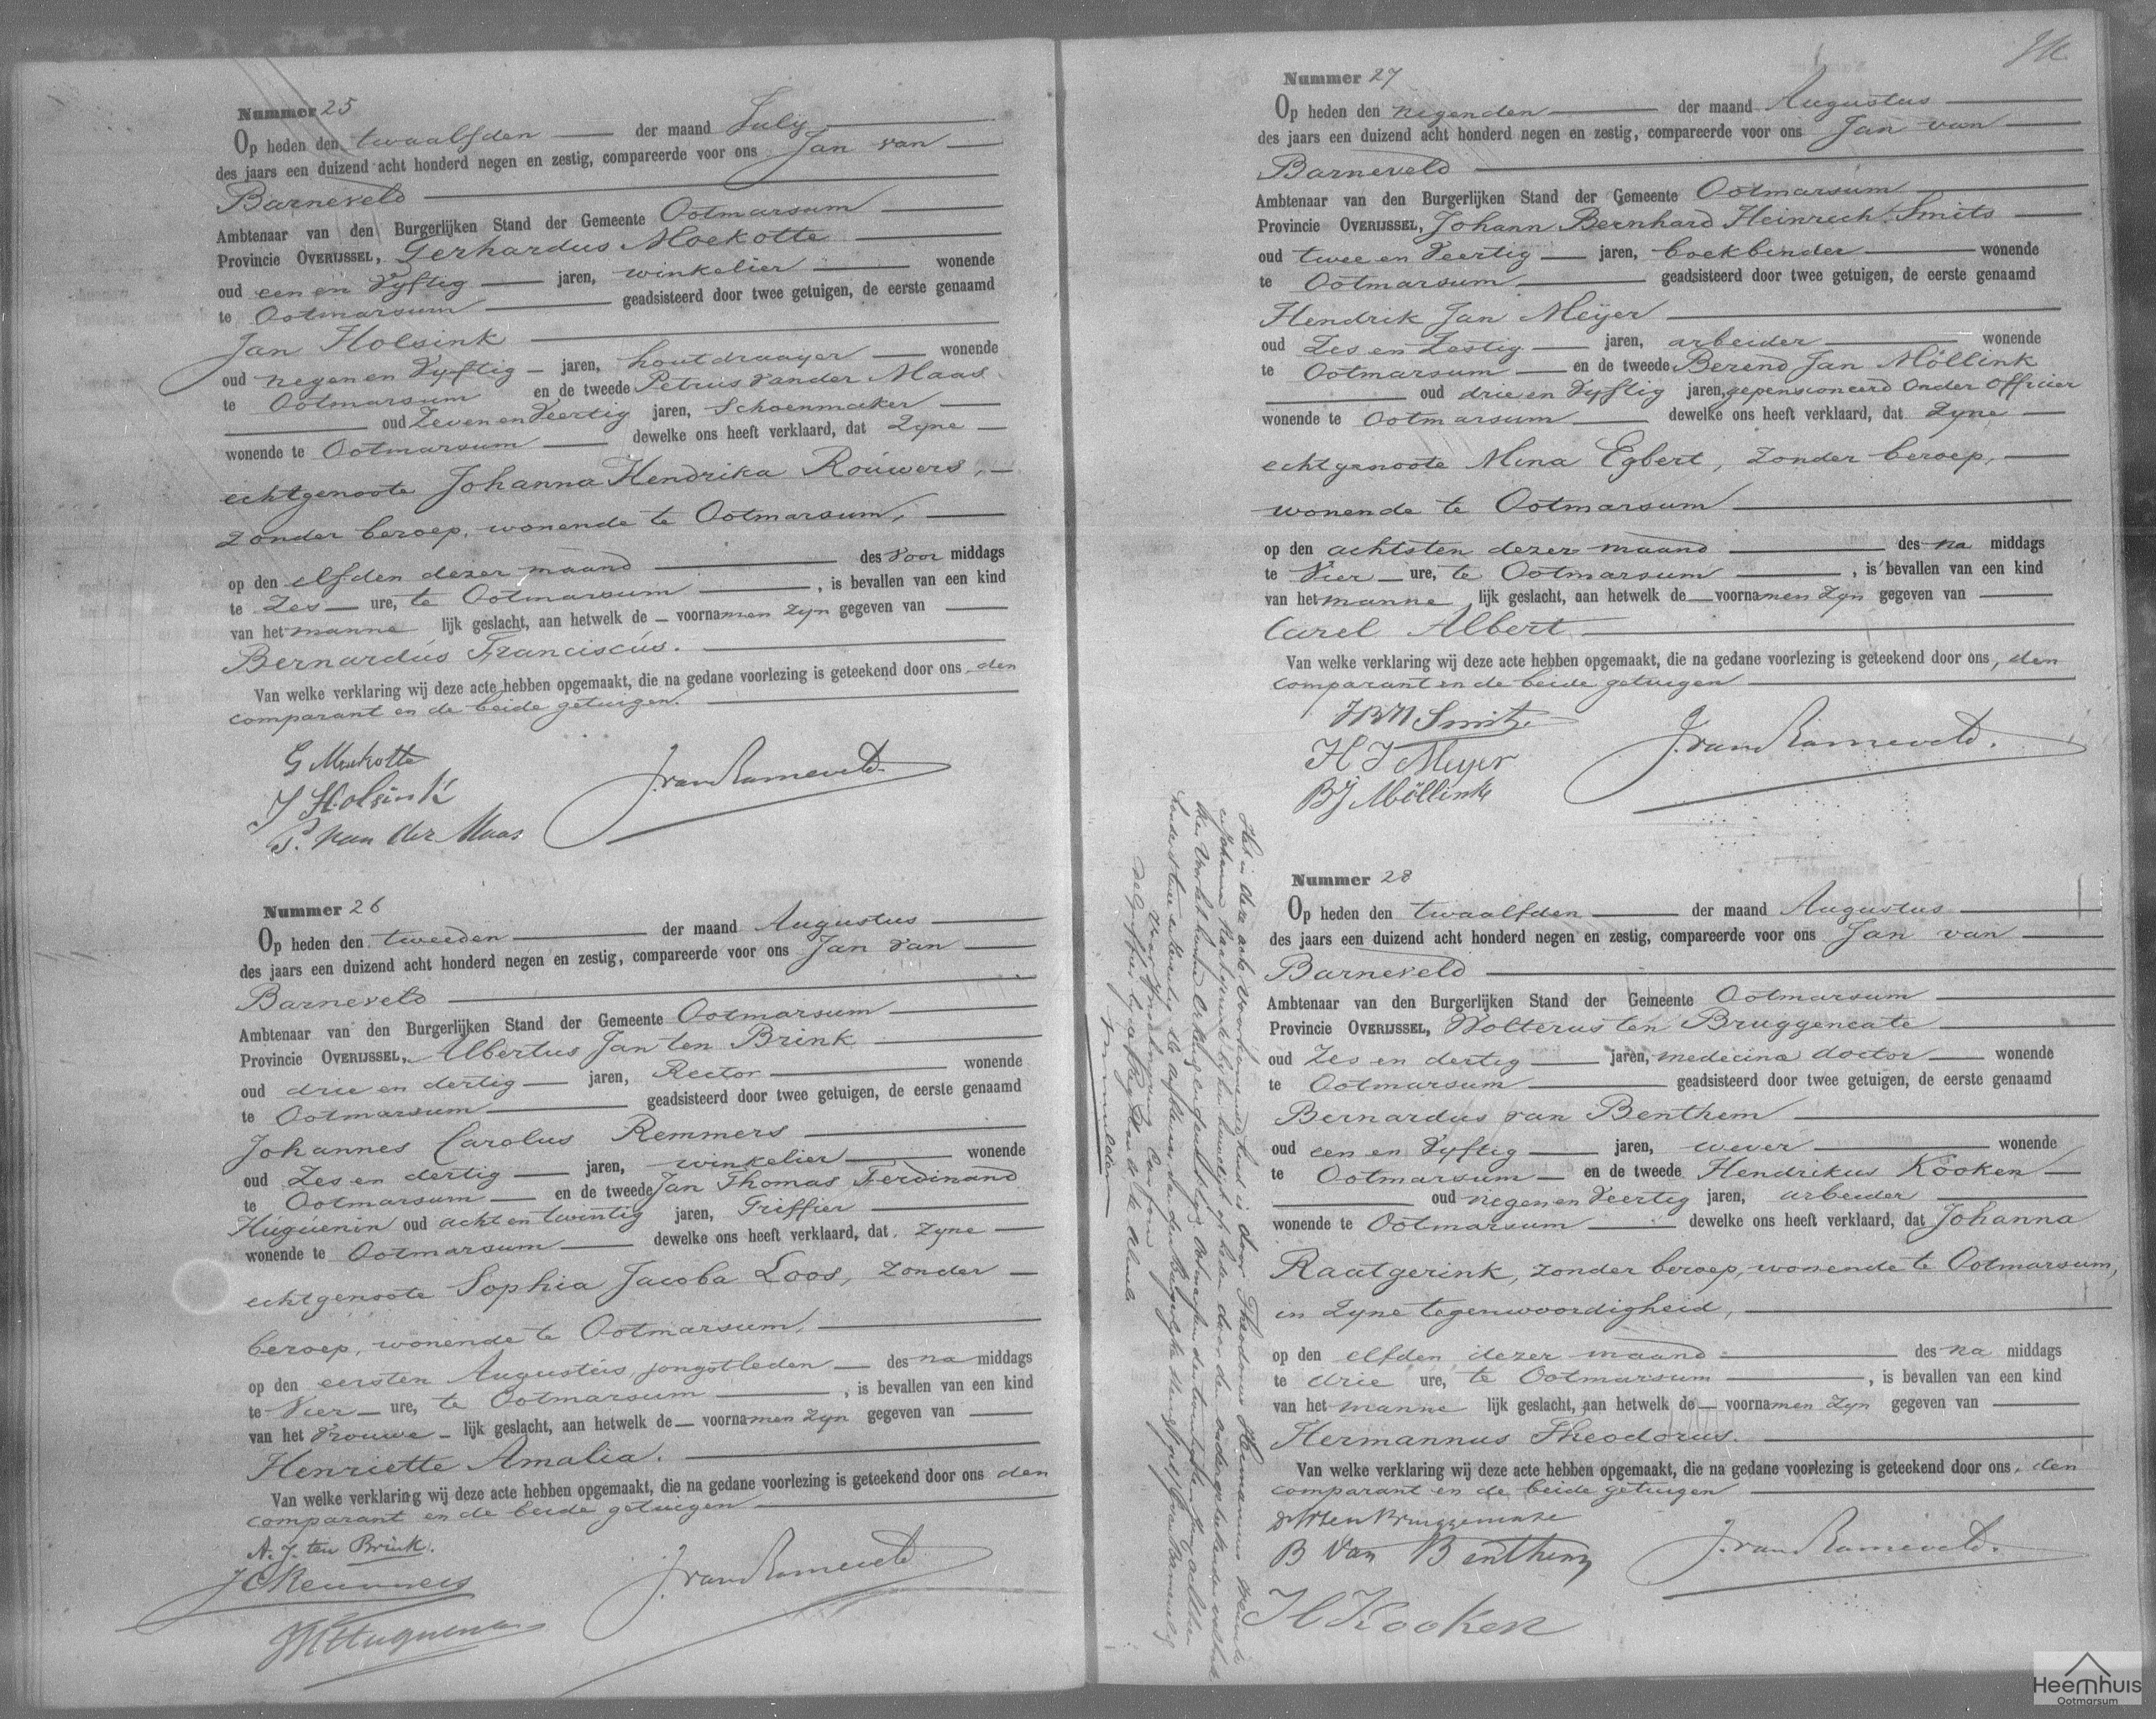 Nummer 25
Op heden den twaalfden der maand July
des jaars een duizend acht honderd negen en zestig, compareerde voor ons Jan van
Barneveld
Ambtenaar van den Burgerlijken Stand der Gemeente Ootmarsum
Provincie OVERIJSSEL, Gerhardus Moekotte
oud een en vyftig jaren, winkelier wonende
te Ootmarsum geadsisteerd door twee getuigen, de eerste genaamd
Jan Holsink
oud negen en vyftig jaren, houtdraayer wonende
te Ootmarsum en de tweede Petrus van der Maas
oud Zeven en Veertig jaren, Schoenmaker
wonende te Ootmarsum dewelke ons heeft verklaard, dat Zyne
echtgenoote Johanna Hendrika Rouwers,
Zonder beroep, wonende te Ootmarsum,
op den elfden dezer maand des voor middags
te Zes ure, te Ootmarsum, is bevallen van een kind
van het manne lijk geslacht, aan hetwelk de voornamen zyn gegeven van
Bernardus Franciscus.
Van welke verklaring wij deze acte hebben opgemaakt, die na gedane voorlezing is geteekend door ons den
comparant en de beide getuigen.
G Moekotte
J Holsink
P. van der Maas
J. van Barneveld
Nummer 26
Op heden den tweeden der maand Augustus
des jaars een duizend acht honderd negen en zestig, compareerde voor ons Jan van
Barneveld
Ambtenaar van den Burgerlijken Stand der Gemeente Ootmarsum
Provincie OVERIJSSEL, Albertus Jan ten Brink
oud drie en dertig jaren, Rector wonende
te Ootmarsum geadsisteerd door twee getuigen, de eerste genaamd
Johannes Carolus Remmers
oud Zes en dertig jaren, winkelier wonende
te Ootmarsum en de tweede Jan Thomas Ferdinand
Huguenin oud acht en twintig jaren, Griffier
wonende te Ootmarsum dewelke ons heeft verklaard, dat Zyne
echtgenoote Sophia Jacoba Loos, Zonder
beroep, wonende te Ootmarsum,
op den eersten Augustus jongstleden des na middags
te Vier ure, te Ootmarsum, is bevallen van een kind
van het Vrouwe lijk geslacht, aan hetwelk de voornamen zyn gegeven van
Henriette Amalia.
Van welke verklaring wij deze acte hebben opgemaakt, die na gedane voorlezing is geteekend door ons den
comparant en de beide getuigen
A. J. ten Brink.
J C Remmers
Huguenin
J. van Barneveld
Nummer 27
Op heden den negenden der maand Augustus
des jaars een duizend acht honderd negen en zestig, compareerde voor ons Jan van
Barneveld
Ambtenaar van den Burgerlijken Stand der Gemeente Ootmarsum
Provincie OVERIJSSEL, Johann Bernhard Heinrich Smits
oud twee en Veertig jaren, boekbinder wonende
te Ootmarsum geadsisteerd door twee getuigen, de eerste genaamd
Hendrik Jan Meyer
oud Zes en Zestig jaren, arbeider wonende
te Ootmarsum en de tweede Berend Jan Möllink
oud drie en Vyftig jaren, gepensioneerd Onder Officier
wonende te Ootmarsum dewelke ons heeft verklaard, dat Zyne
echtgenoote Mina Egbert, Zonder beroep,
wonende te Ootmarsum
op den achtsten dezer maand des na middags
te Vier ure, te Ootmarsum, is bevallen van een kind
van het manne lijk geslacht, aan hetwelk de voornamen zyn gegeven van
Carel Albert
Van welke verklaring wij deze acte hebben opgemaakt, die na gedane voorlezing is geteekend door ons, den
comparant en de beide getuigen
JBH Smits
H J Meyer
BJ Möllink
J. van Barneveld.
Nummer 28
Op heden den twaalfden der maand Augustus
des jaars een duizend acht honderd negen en zestig, compareerde voor ons Jan van
Barneveld
Ambtenaar van den Burgerlijken Stand der Gemeente Ootmarsum
Provincie OVERIJSSEL, Wolterus ten Bruggencate
oud Zes en dertig jaren, medecina doctor wonende
te Ootmarsum geadsisteerd door twee getuigen, de eerste genaamd
Bernardus van Benthem
oud een en Vyftig jaren, wever wonende
te Ootmarsum en de tweede Hendrikus Kooken
oud negen en Veertig jaren, arbeider
wonende te Ootmarsum dewelke ons heeft verklaard, dat Johanna
Raatgerink, zonder beroep, wonende te Ootmarsum,
in Zyne tegenwoordigheid,
op den elfden dezer maand des na middags
te drie ure, te Ootmarsum, is bevallen van een kind
van het manne lijk geslacht, aan hetwelk de voornamen zyn gegeven van
Hermannus Theodorus.
Van welke verklaring wij deze acte hebben opgemaakt, die na gedane voorlezing is geteekend door ons, den
comparant en de beide getuigen
ten Bruggencate
B van Benthem
H Kooken
J. van Barneveld.
Het in deze acte voorkomende kind is door Theodorus Hermannus
en Johanna Raatgerink bij hun huwelijk op heden door den ondergeteekende
Heemhuis
Ootmarsum